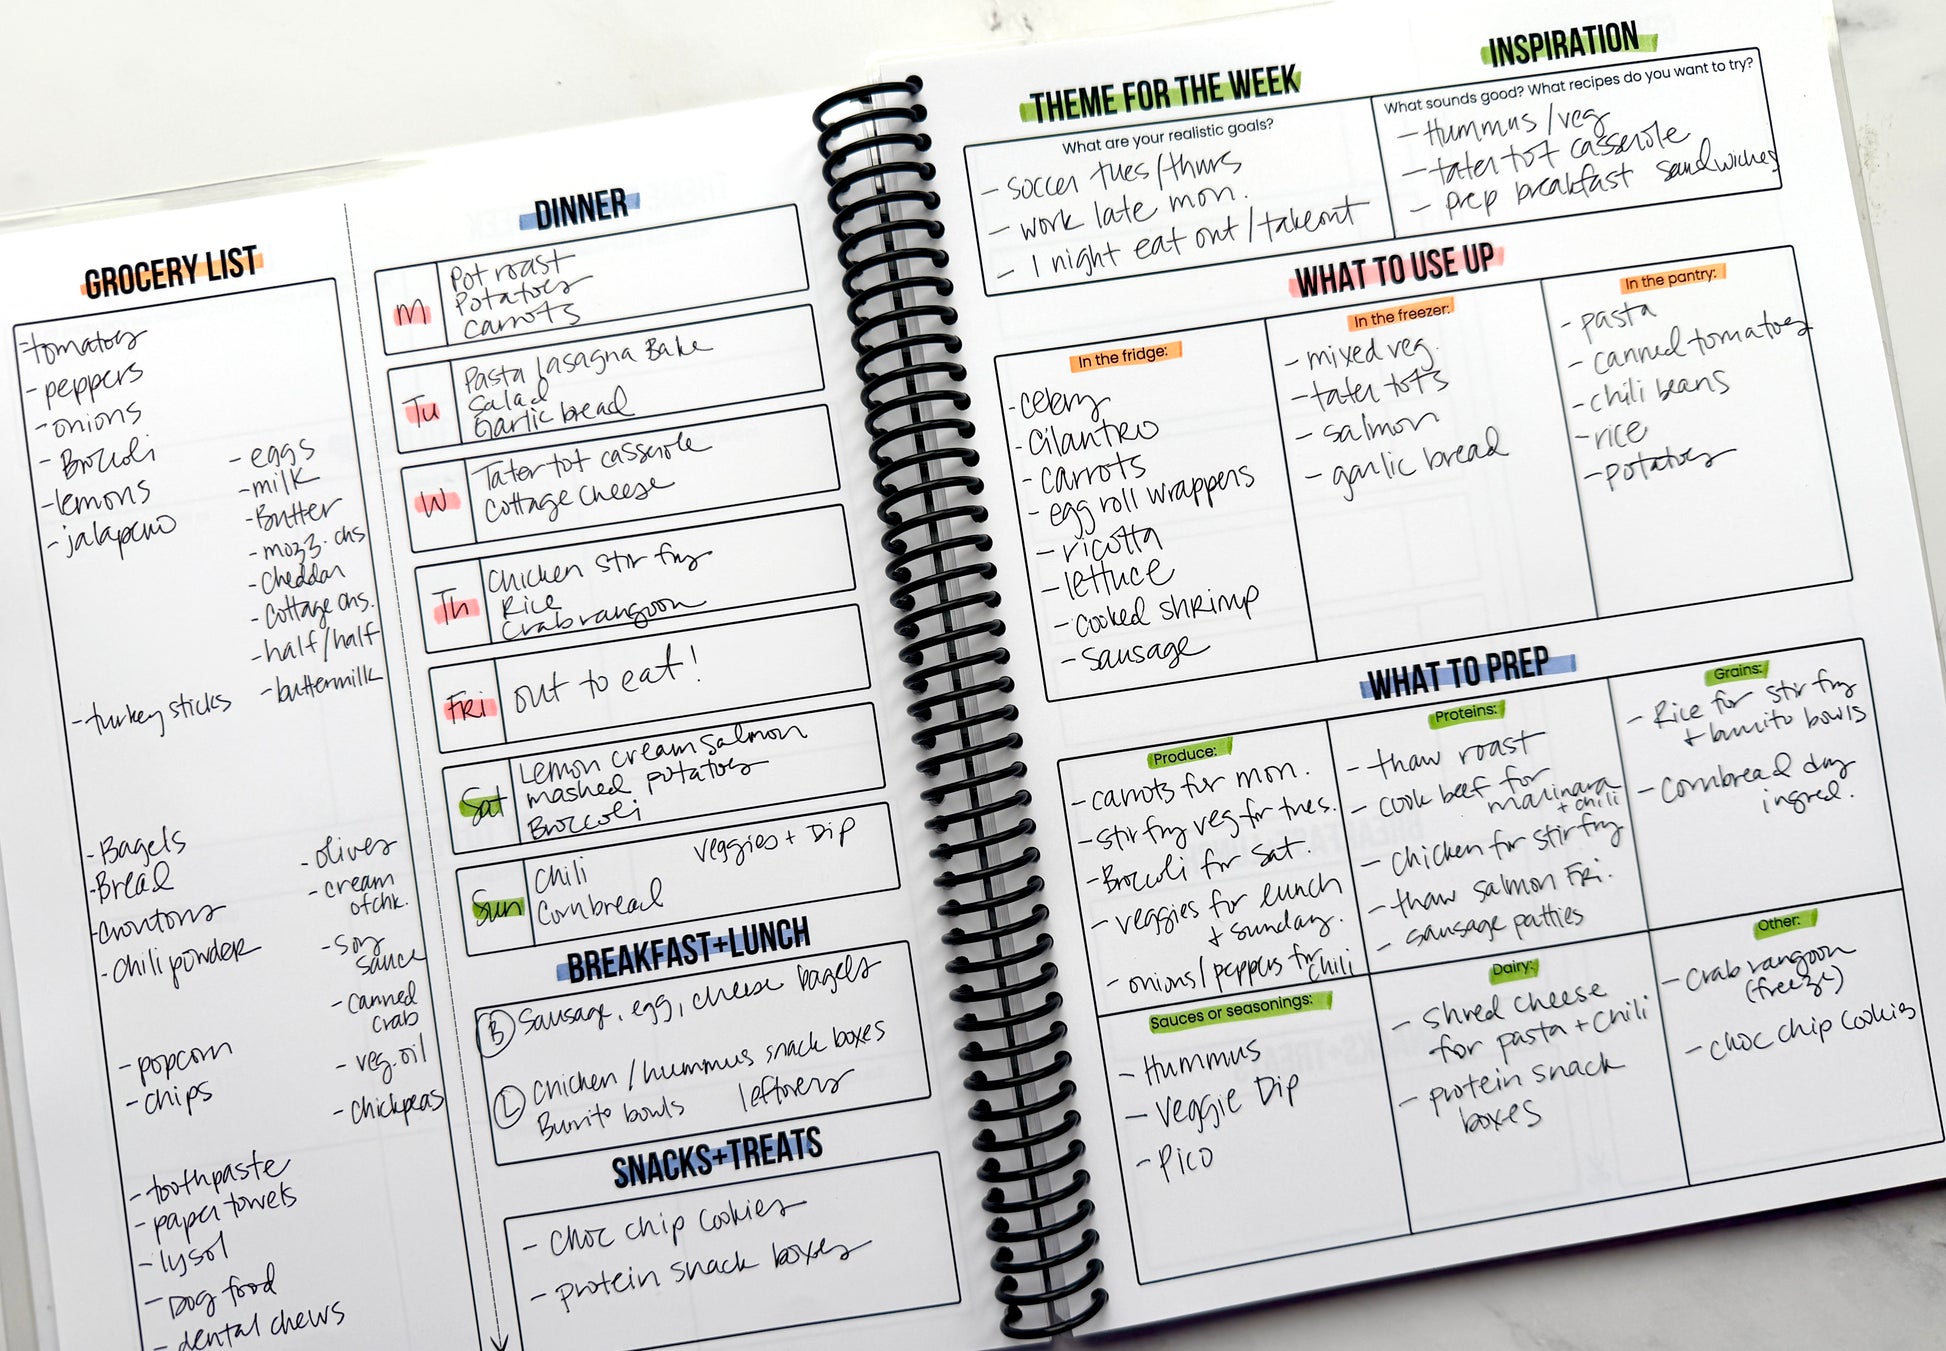 GROCERY LIST
-tomatoes
- peppers
- onions
- Broccoli
- lemons
- jalapeno
- eggs
- milk
- Butter
- mozz. chs
- cheddar
- cottage chs.
- half/half
- buttermilk
- turkey sticks
- Bagels
- Bread
- croutons
- chili powder
- olives
- cream
of chk.
- soy
sauce
- canned
crab
- veg. oil
- chickpeas
- popcorn
- chips
- toothpaste
- paper towels
- lysol
- Dog food
- dental chews
DINNER
M
Pot roast
Potatoes
carrots
Tu
Pasta lasagna Bake
Salad
Garlic bread
W
Tater tot casserole
Cottage Cheese
Th
Chicken stir fry
Rice
Crab rangoon
Fri
out to eat!
Sat
Lemon cream salmon
mashed potatoes
Broccoli
Sun
Chili
Cornbread
veggies + Dip
BREAKFAST+LUNCH
B Sausage, egg, cheese bagels
L Chicken / hummus snack boxes
Burrito bowls leftovers
SNACKS+TREATS
- choc chip cookies
- protein snack boxes
THEME FOR THE WEEK
What are your realistic goals?
- soccer tues/thurs
- work late mon.
- 1 night eat out/takeout
INSPIRATION
What sounds good? What recipes do you want to try?
- Hummus / veg
- tater tot casserole
- Prep breakfast sandwiches
WHAT TO USE UP
In the fridge:
- celery
- cilantro
- carrots
- egg roll wrappers
- ricotta
- lettuce
- cooked shrimp
- sausage
In the freezer:
- mixed veg.
- tater tots
- salmon
- garlic bread
In the pantry:
- pasta
- canned tomatoes
- chili beans
- rice
- potatoes
WHAT TO PREP
Produce:
- carrots for mon.
- stir fry veg for tues.
- Broccoli for Sat.
- veggies for lunch
+ sunday.
- onions/peppers for chili
Proteins:
- thaw roast
- cook beef for
marinara
+ chili
- chicken for stir fry
- thaw salmon Fri.
- sausage patties
Grains:
- Rice for stir fry
+ burrito bowls
- Cornbread dry
ingred.
Sauces or seasonings:
- Hummus
- Veggie Dip
- Pico
Dairy:
- shred cheese
for pasta + chili
- protein snack
boxes
Other:
- Crab rangoon
(freeze)
- choc chip cookies